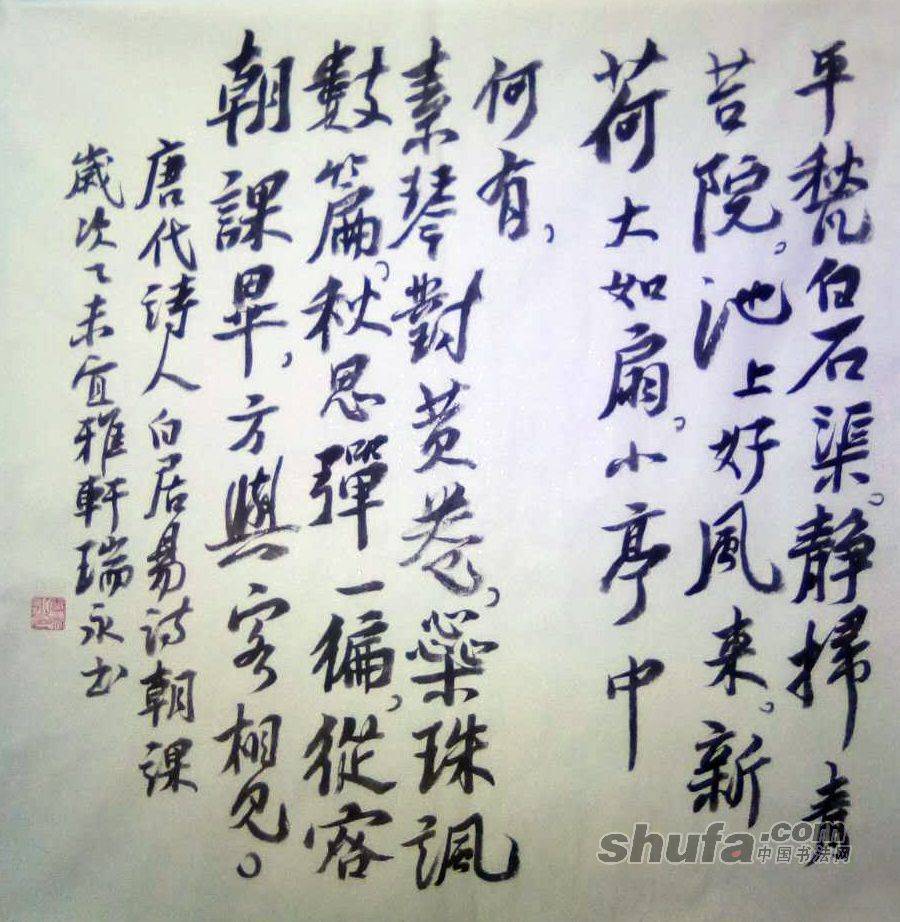 平甃白石渠。静掃青
苔院。池上好風来。新
荷大如扇。小亭中
何有,
素琴對黄卷,橤珠諷
數篇。秋思彈一徧,從容
朝課畢,方與客相见。
唐代詩人白居易诗朝課
歲次乙未宜雅軒瑞永书
shufa.com
中国书法网